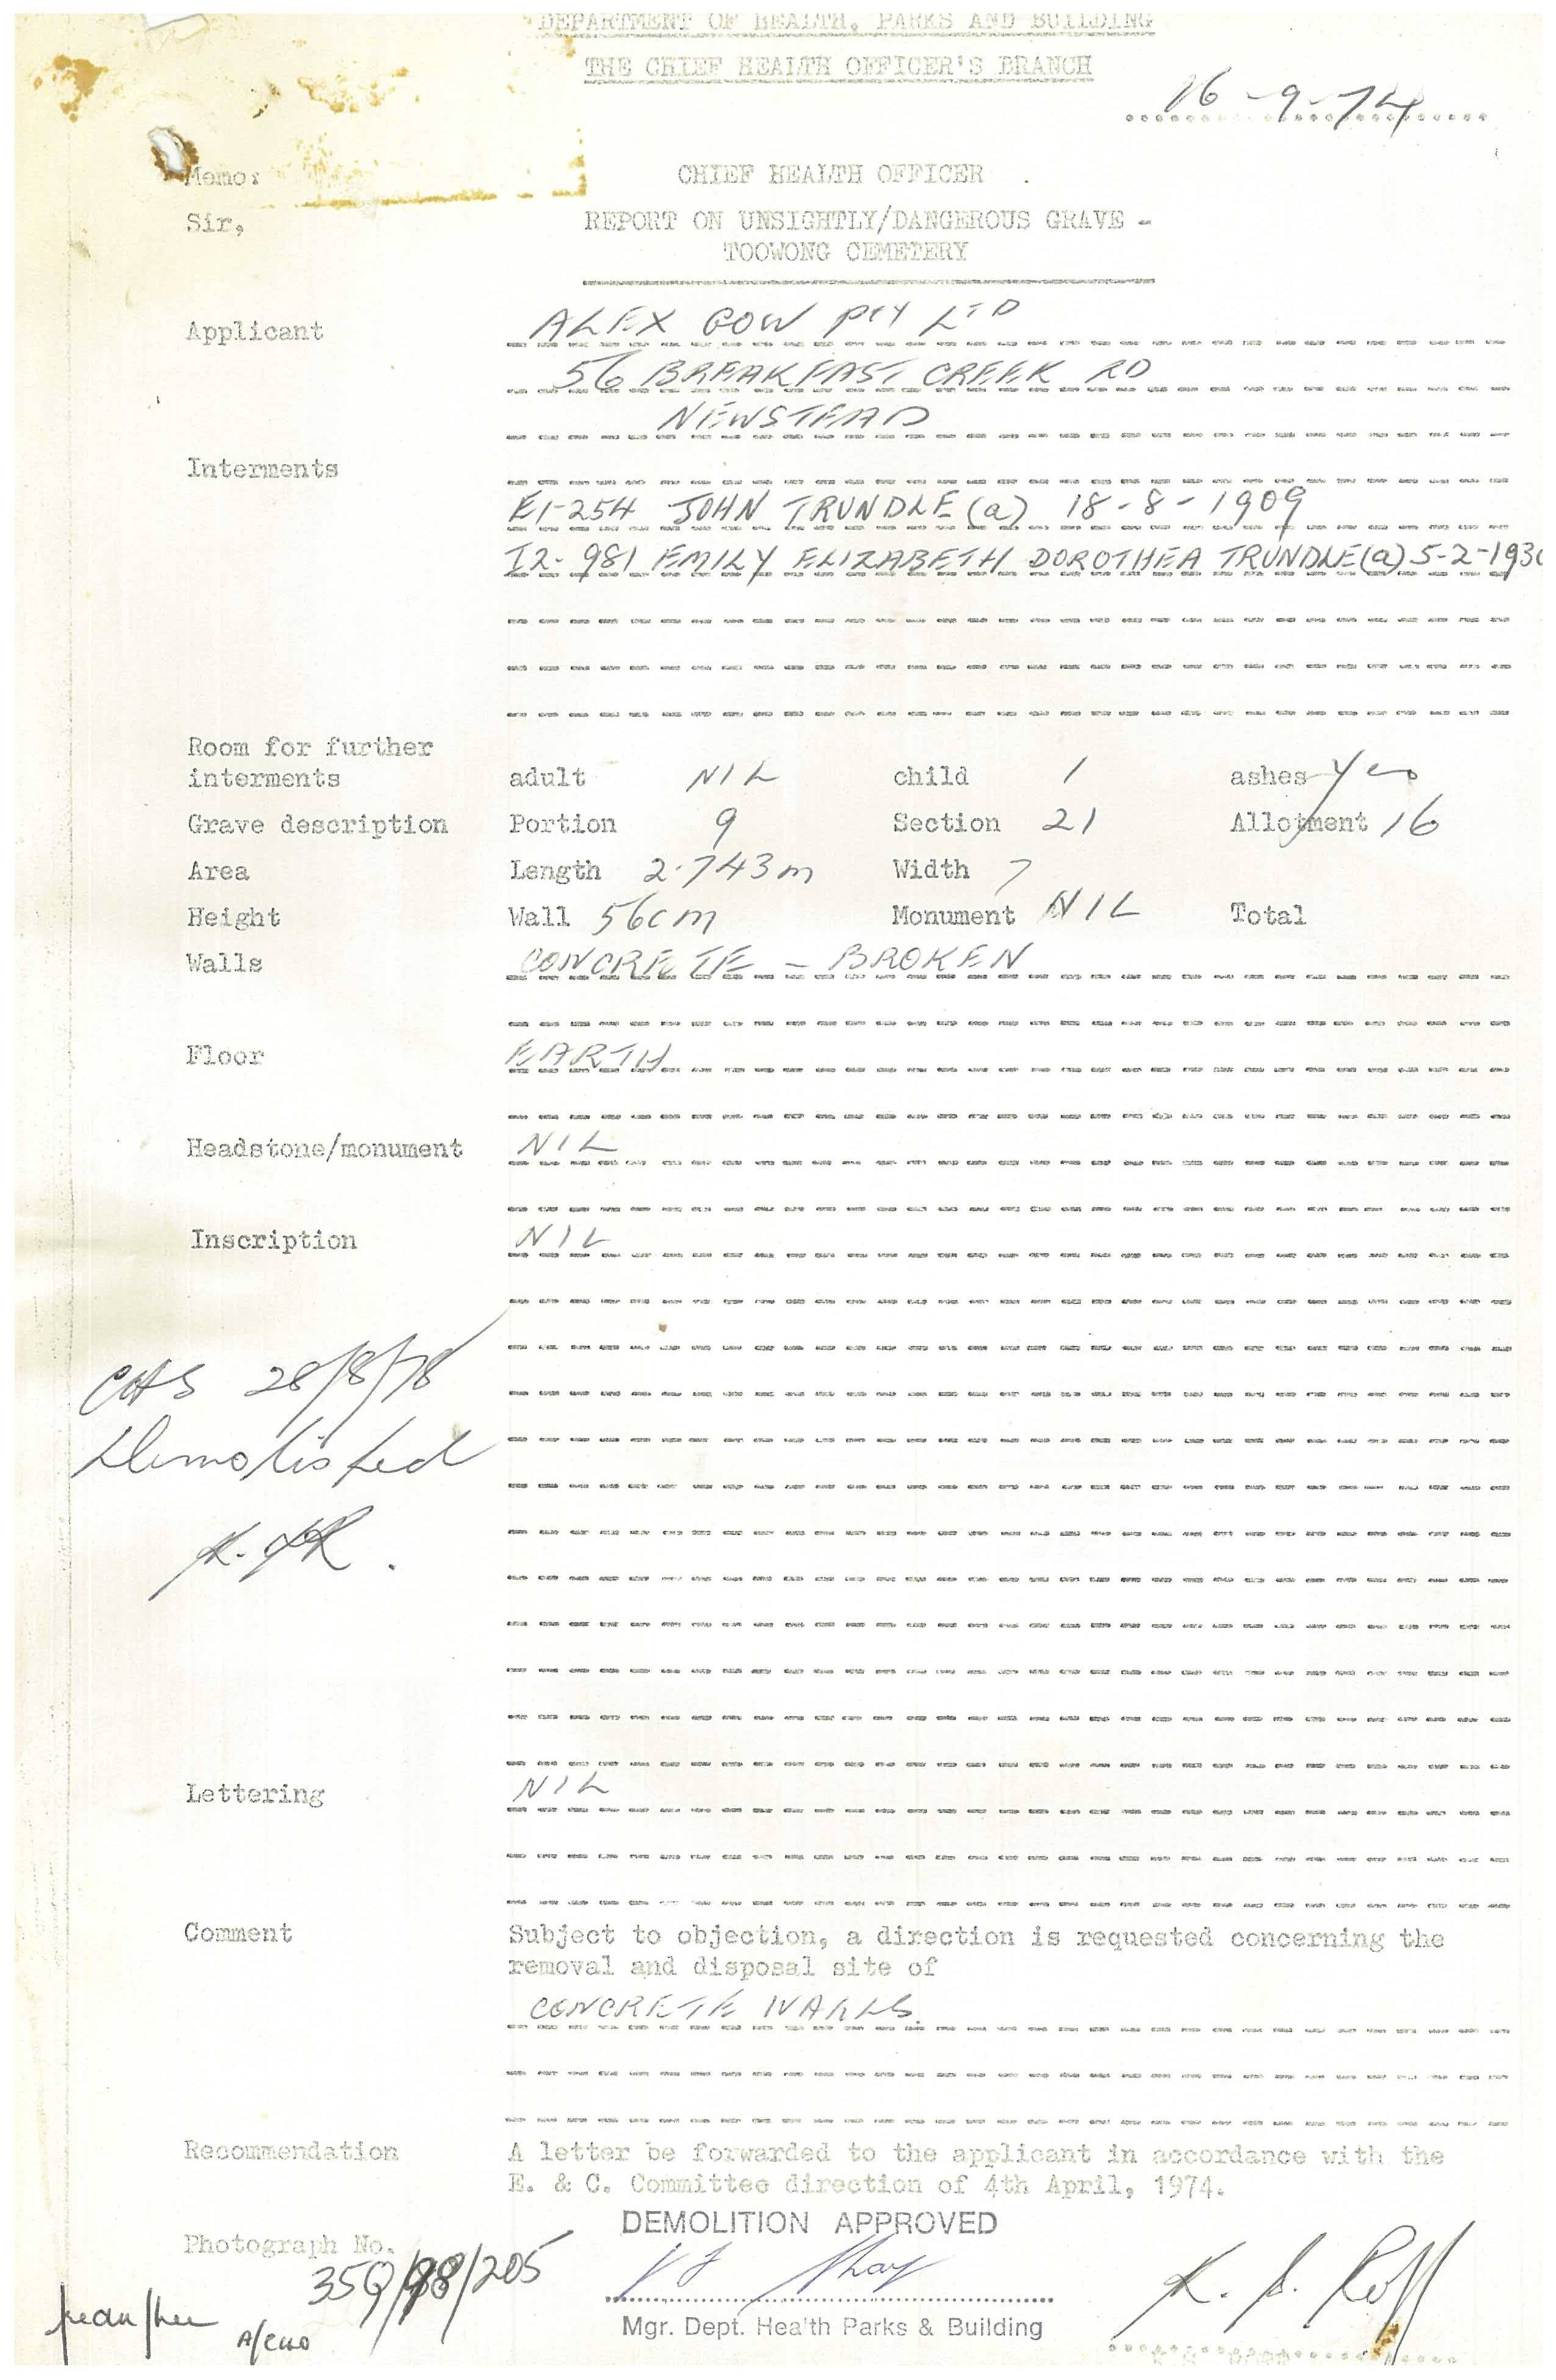 DEPARTMENT OF HEALTH, PARKS AND BUILDING
THE CHIEF HEALTH OFFICER'S BRANCH
16-9-74
Memo: CHIEF HEALTH OFFICER
Sir, REPORT ON UNSIGHTLY/DANGEROUS GRAVE -
TOOWONG CEMETERY
Applicant ALEX GOW PTY LTD
56 BREAKFAST CREEK RD
NEWSTEAD
Interments
E1-254 JOHN TRUNDLE (a) 18-8-1909
I2-981 EMILY ELIZABETH DOROTHEA TRUNDLE (a) 5-2-193
Room for further
interments adult NIL child 1 ashes Yes
Grave description Portion 9 Section 21 Allotment 16
Area Length 2.743m Width
Height Wall 56cm Monument NIL Total
Walls CONCRETE - BROKEN
Floor EARTH
Headstone/monument NIL
Inscription NIL
CHS 28/8/78
Demolished
Lettering NIL
Comment Subject to objection, a direction is requested concerning the
removal and disposal site of
CONCRETE WALLS.
Recommendation A letter be forwarded to the applicant in accordance with the
E. & C. Committee direction of 4th April, 1974.
DEMOLITION APPROVED
Photograph No.
A/CHO
Mgr. Dept. Health Parks & Building